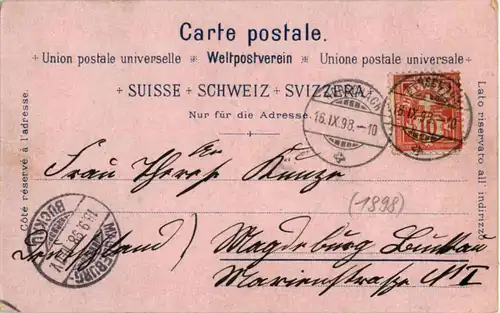 Carte postale.
Union postale universelle Weltpostverein Unione postale universale
SUISSE SCHWEIZ SVIZZERA
16.IX.98.-10
10
Nur für die Adresse.
Côté réservé à l'adresse.
Lato riservato all' indirizzo
Frau Therese Kunze
(1898)
BUCKAU
MAGDEBURG
(Deutschland) Magdeburg Buckau
Marienstrasse